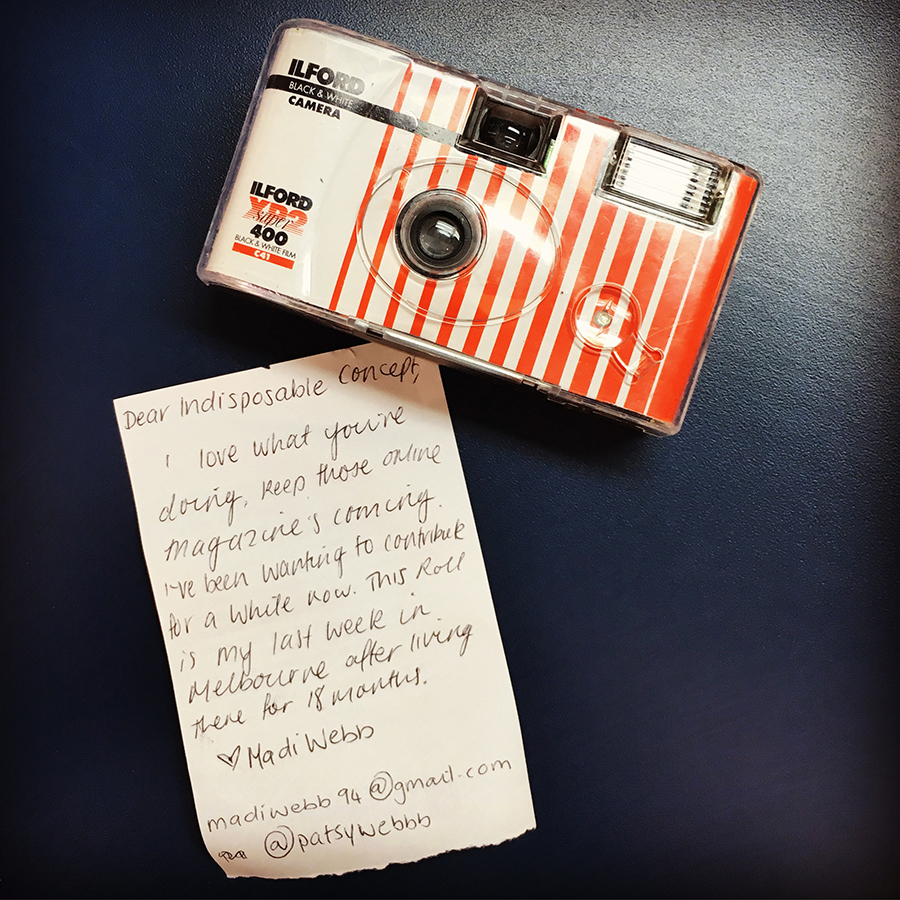 ILFORD
BLACK & WHITE
CAMERA
ILFORD
XP2
super
400
BLACK & WHITE FILM
C41
Dear Indisposable Concept,
I love what you're
doing, keep those online
magazine's coming.
I've been wanting to contribute
for a while now. This Roll
is my last week in
Melbourne after living
there for 18 months.
♡ Madi Webb
madiwebb94@gmail.com
@patsywebbb